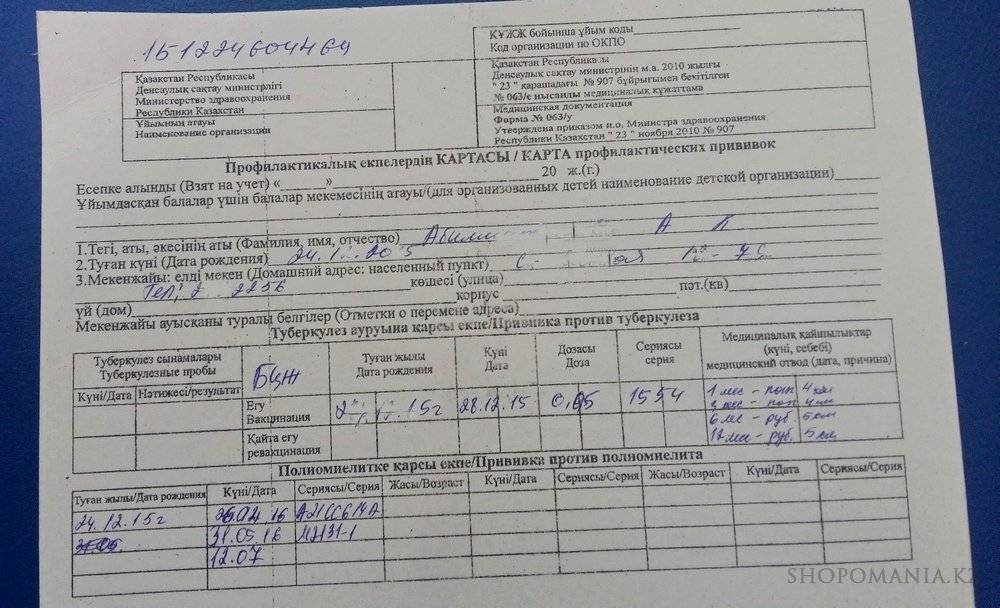 151224604464
ҚҰЖЖ бойынша ұйым коды
Код организации по ОКПО
Қазақстан Республикасы
Денсаулық сақтау министрлігі
Министерство здравоохранения
Республики Казахстан
Ұйымның атауы
Наименование организации
Қазақстан Республикасы
Денсаулық сақтау министрінің м.а. 2010 жылғы
" 23 " қарашадағы № 907 бұйрығымен бекітілген
№ 063/е нысанды медициналық құжаттама
Медицинская документация
Форма № 063/у
Утверждена приказом и.о. Министра здравоохранения
Республики Казахстан " 23 " ноября 2010 № 907
Профилактикалық екпелердің КАРТАСЫ / КАРТА профилактических прививок
Есепке алынды (Взят на учет) «____»____ 20 ж.(г.)
Ұйымдасқан балалар үшін балалар мекемесінің атауы/(для организованных детей наименование детской организации)
1.Тегі, аты, әкесінің аты (Фамилия, имя, отчество) А
2.Туған күні (Дата рождения) 24.
3.Мекенжайы: елді мекен (Домашний адрес: населенный пункт)
2256 көшесі (улица) пәт.(кв)
үй (дом) корпус
Мекенжайы ауысқаны туралы белгілер (Отметки о перемене адреса)
Туберкулез ауруына қарсы екпе/Прививка против туберкулеза
Туберкулез сынамалары
Туберкулезные пробы
БЦЖ
Туған жылы
Дата рождения
Күні
Дата
Дозасы
Доза
Сериясы
серия
Медициналық қайшылықтар
(күні, себебі)
медицинский отвод (дата, причина)
Күні/Дата Нәтижесі/результат
Егу
Вакцинация 15г 28.12.15 0,05 1554
1 мес - пап 4 мм
3 мес - пап 4 мм
6 мес - руб. 5 мм
12 мес - руб. 5 мм
Қайта егу
ревакцинация
Полиомиелитке қарсы екпе/Прививка против полиомиелита
Туған жылы/Дата рождения Күні/Дата Сериясы/Серия Жасы/Возраст Күні/Дата Сериясы/Серия Жасы/Возраст Күні/Дата Сериясы/Серия
24.12.15г 16
31.05.16 М2131-1
12.07
SHOPOMANIA.KZ